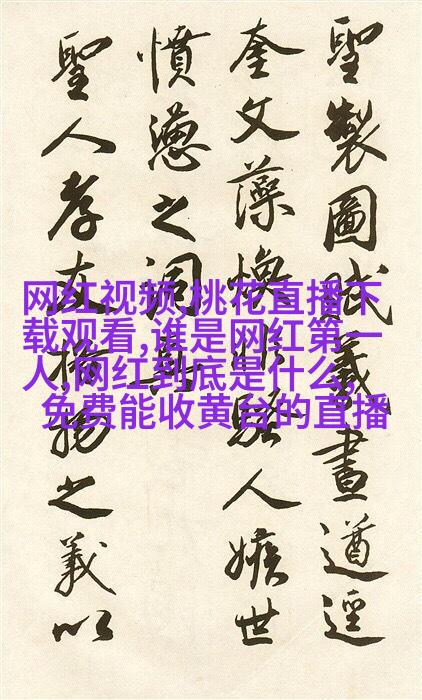 聖製圖賦義畫遒逕
奎文藻煥非騷人嫉世
憤懣之詞
聖人孝友物之義以
网红视频,桃花直播下
载观看,谁是网红第一
人,网红到底是什么,
免费能收黄台的直播